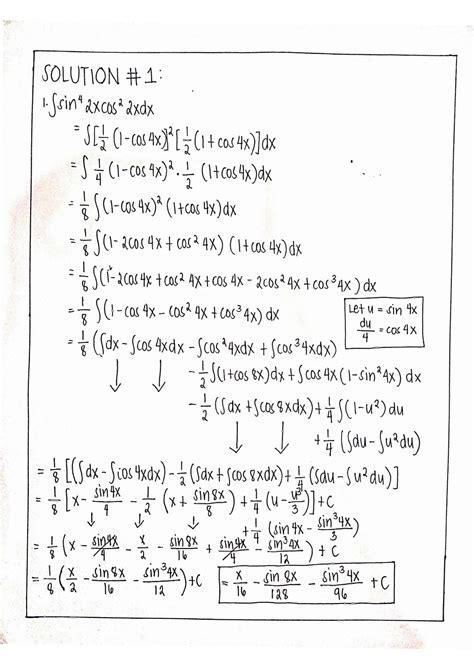 SOLUTION #1:
1. ∫sin⁴ 2xcos² 2xdx
= ∫[1/2 (1-cos 4x)]² [1/2 (1+cos 4x)]dx
= ∫ 1/4 (1-cos 4x)² · 1/2 (1+cos 4x)dx
= 1/8 ∫(1-cos 4x)² (1+cos 4x)dx
= 1/8 ∫(1-2cos 4x + cos² 4x) (1+cos 4x)dx
= 1/8 ∫(1-2cos 4x + cos² 4x + cos 4x - 2cos² 4x + cos³ 4x) dx
= 1/8 ∫(1-cos 4x - cos² 4x + cos³ 4x) dx
Let u = sin 4x
du/4 = cos 4x
= 1/8 (∫dx - ∫cos 4xdx - ∫cos² 4xdx + ∫cos³ 4xdx)
- 1/2 ∫(1+cos 8x)dx + ∫cos 4x (1-sin² 4x)dx
- 1/2 (∫dx + ∫cos 8xdx) + 1/4 ∫(1-u²) du
+ 1/4 (∫du - ∫u²du)
= 1/8 [(∫dx - ∫cos 4xdx) - 1/2 (∫dx + ∫cos 8xdx) + 1/4 (∫du - ∫u² du)]
= 1/8 [x - sin 4x/4 - 1/2 (x + sin 8x/8) + 1/4 (u - u³/3)] + C
+ 1/4 (sin 4x - sin³ 4x/3)
= 1/8 (x - sin 4x/4 - x/2 - sin 8x/16 + sin 4x/4 - sin³ 4x/12) + C
= 1/8 (x/2 - sin 8x/16 - sin³ 4x/12) + C
= x/16 - sin 8x/128 - sin³ 4x/96 + C